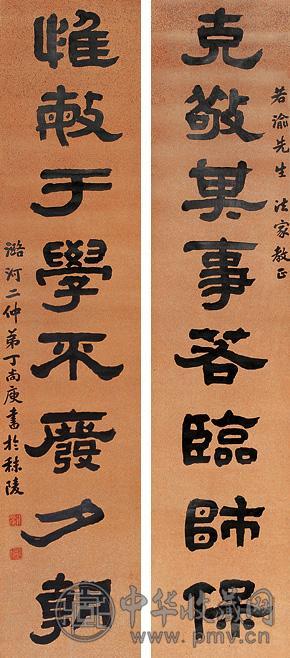 若渝先生 法家教正
克敬其事若臨師保
惟敏于學不廢夕朝
潞河二仲弟丁尚庚書於秣陵
中华收藏网
www.pmv.cn